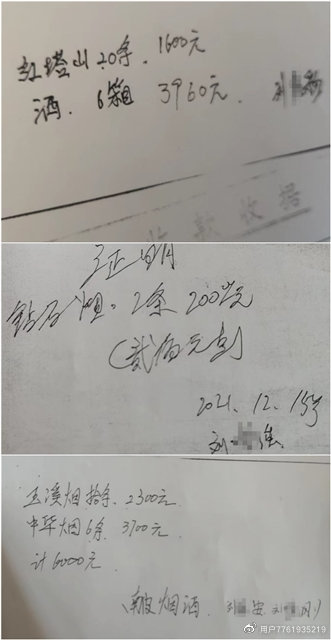 红塔山20条. 1600元
酒. 6箱 3960元. 刘
收款收据
证明
钻石烟. 2条 200元
(贰佰元整)
2021. 12. 15号
刘
玉溪烟拾条. 2300元
中华烟6条. 3700元
计6000元.
烟酒. 安 刘 刚)
@用户7761935219